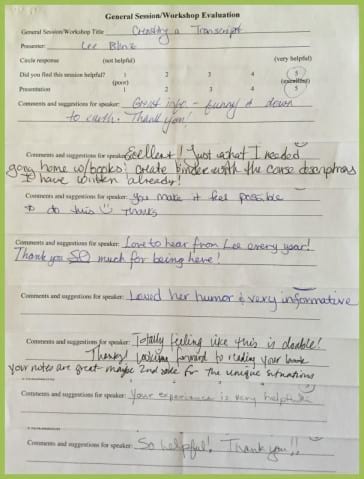 General Session/Workshop Evaluation
General Session/Workshop Title Creating a Transcript
Presenter: Lee Binz
Circle response (not helpful) (very helpful)
Did you find this session helpful? 1 2 3 4 5
(poor) (excellent)
Presentation 1 2 3 4 5
Comments and suggestions for speaker: Great info - funny & down
to earth. Thank you!
Comments and suggestions for speaker: Excellent! Just what I needed
going home w/books: create binder with the course descriptions
I have written already!
Comments and suggestions for speaker: you make it feel possible
to do this Thanks
Comments and suggestions for speaker: Love to hear from Lee every year!
Thank you SO much for being here!
Comments and suggestions for speaker: Loved her humor & very informative
Comments and suggestions for speaker: Totally feeling like this is doable!
Thanks! Looking forward to reading your book
your notes are great maybe 2nd for the unique situations
Comments and suggestions for speaker: Your experience is very helpful
Comments and suggestions for speaker: So helpful! Thank you!!